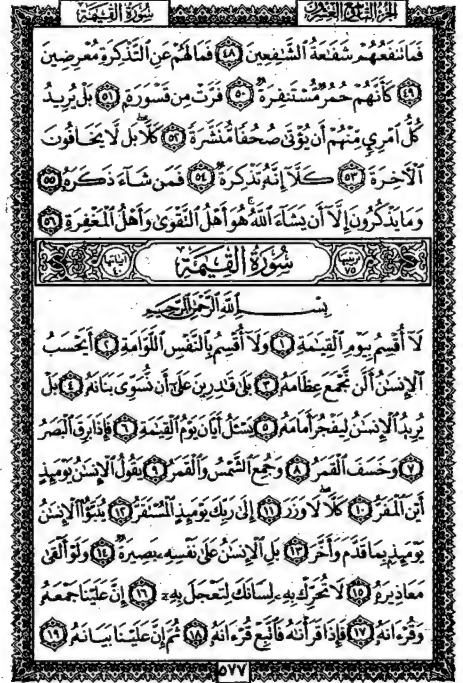 سُورَةُ القِيَامَة
الجزء التاسع والعشرون
فَمَا تَنفَعُهُمْ شَفَٰعَةُ ٱلشَّٰفِعِينَ ٤٨ فَمَا لَهُمْ عَنِ ٱلتَّذْكِرَةِ مُعْرِضِينَ
٤٩ كَأَنَّهُمْ حُمُرٌ مُّسْتَنفِرَةٌ ٥٠ فَرَّتْ مِن قَسْوَرَةٍ ٥١ بَلْ يُرِيدُ
كُلُّ ٱمْرِئٍ مِّنْهُمْ أَن يُؤْتَىٰ صُحُفًا مُّنَشَّرَةً ٥٢ كَلَّا بَل لَّا يَخَافُونَ
ٱلْءَاخِرَةَ ٥٣ كَلَّآ إِنَّهُۥ تَذْكِرَةٌ ٥٤ فَمَن شَآءَ ذَكَرَهُۥ ٥٥
وَمَا يَذْكُرُونَ إِلَّآ أَن يَشَآءَ ٱللَّهُ هُوَ أَهْلُ ٱلتَّقْوَىٰ وَأَهْلُ ٱلْمَغْفِرَةِ ٥٦
ترتيبها ٧٥ سُورَةُ القِيَامَة آياتها ٤٠
بِسْمِ ٱللَّهِ ٱلرَّحْمَٰنِ ٱلرَّحِيمِ
لَآ أُقْسِمُ بِيَوْمِ ٱلْقِيَٰمَةِ ١ وَلَآ أُقْسِمُ بِٱلنَّفْسِ ٱللَّوَّامَةِ ٢ أَيَحْسَبُ
ٱلْإِنسَٰنُ أَلَّن نَّجْمَعَ عِظَامَهُۥ ٣ بَلَىٰ قَٰدِرِينَ عَلَىٰٓ أَن نُّسَوِّىَ بَنَانَهُۥ ٤ بَلْ
يُرِيدُ ٱلْإِنسَٰنُ لِيَفْجُرَ أَمَامَهُۥ ٥ يَسْـَٔلُ أَيَّانَ يَوْمُ ٱلْقِيَٰمَةِ ٦ فَإِذَا بَرِقَ ٱلْبَصَرُ
٧ وَخَسَفَ ٱلْقَمَرُ ٨ وَجُمِعَ ٱلشَّمْسُ وَٱلْقَمَرُ ٩ يَقُولُ ٱلْإِنسَٰنُ يَوْمَئِذٍ
أَيْنَ ٱلْمَفَرُّ ١٠ كَلَّا لَا وَزَرَ ١١ إِلَىٰ رَبِّكَ يَوْمَئِذٍ ٱلْمُسْتَقَرُّ ١٢ يُنَبَّؤُا۟ ٱلْإِنسَٰنُ
يَوْمَئِذٍۭ بِمَا قَدَّمَ وَأَخَّرَ ١٣ بَلِ ٱلْإِنسَٰنُ عَلَىٰ نَفْسِهِۦ بَصِيرَةٌ ١٤ وَلَوْ أَلْقَىٰ
مَعَاذِيرَهُۥ ١٥ لَا تُحَرِّكْ بِهِۦ لِسَانَكَ لِتَعْجَلَ بِهِۦٓ ١٦ إِنَّ عَلَيْنَا جَمْعَهُۥ
وَقُرْءَانَهُۥ ١٧ فَإِذَا قَرَأْنَٰهُ فَٱتَّبِعْ قُرْءَانَهُۥ ١٨ ثُمَّ إِنَّ عَلَيْنَا بَيَانَهُۥ ١٩
٥٧٧